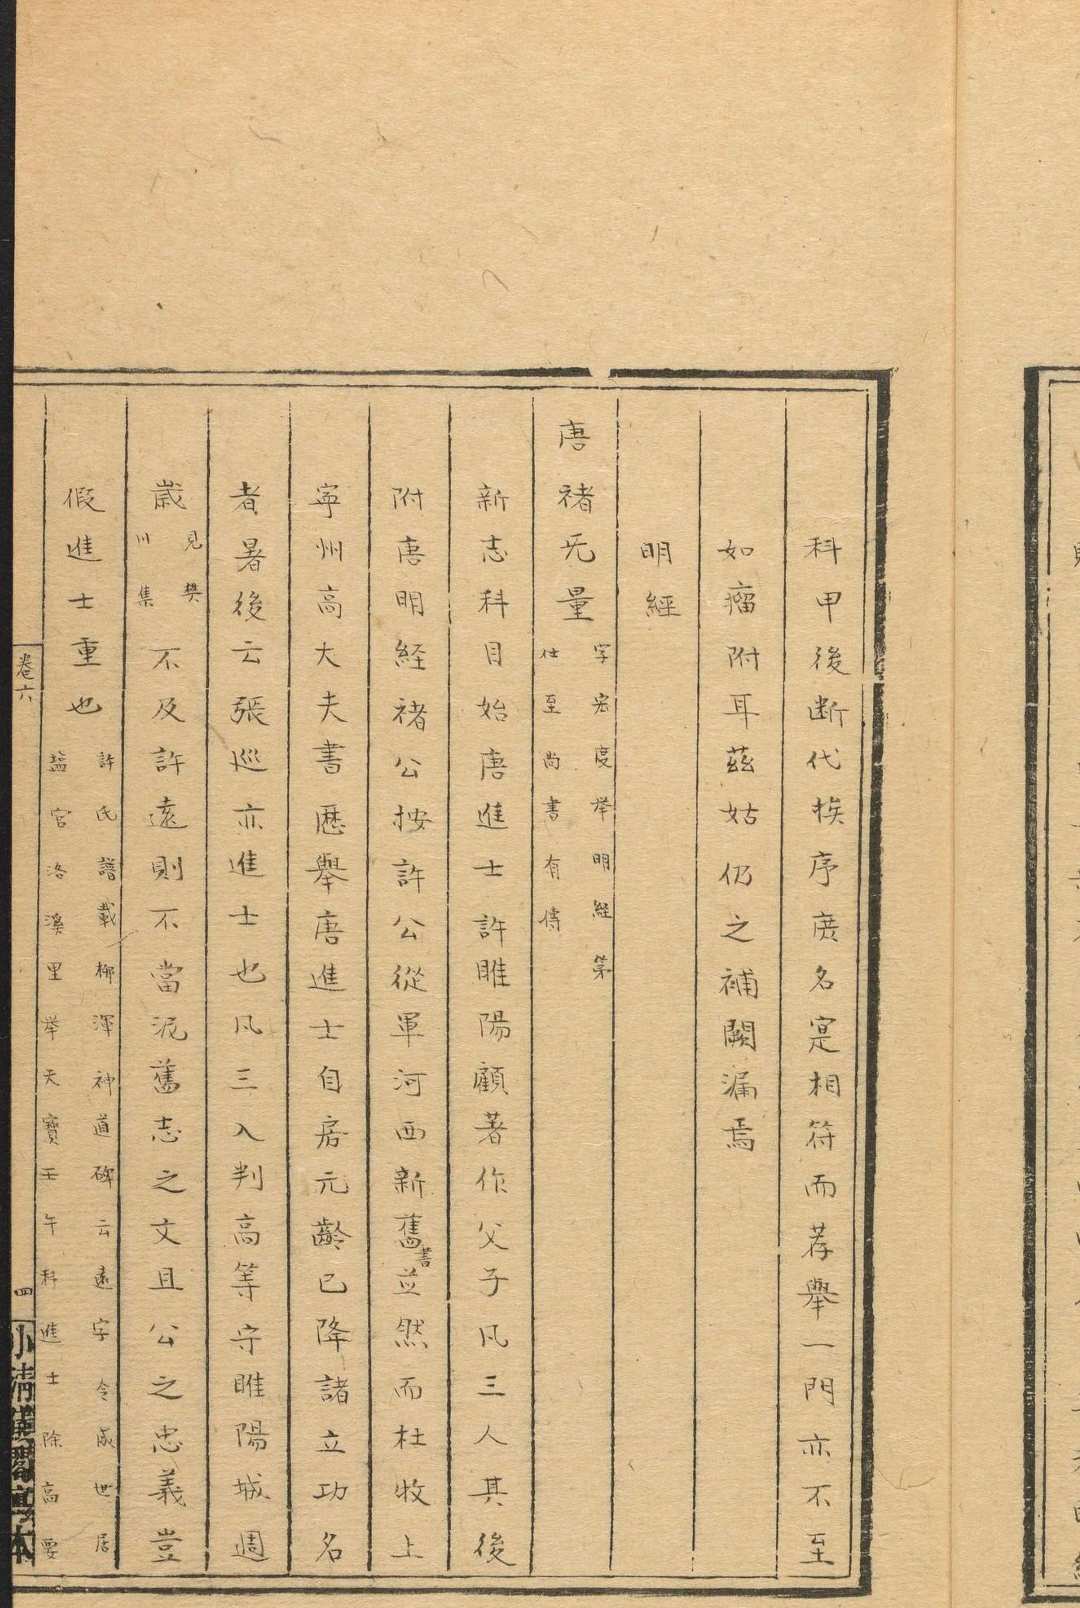 科甲後斷代挨序庶名寔相符而荐舉一門亦不至
如瘤附耳茲姑仍之補闕漏焉
明經
唐
褚无量
字宏度举明經第
仕至尚書有傳
新志科目始唐進士許睢陽顧著作父子凡三人其後
附唐明經褚公按許公從軍河西新舊書並然而杜牧上
寧州高大夫書歷舉唐進士自房元齡已降諸立功名
者暑後云張巡亦進士也凡三入判高等守睢陽城週
歲
見樊
川集
不及許遠則不當泥舊志之文且公之忠義豈
假進士重也
許氏譜載柳渾神道碑云遠字令威世居
盐官洛溪里举天寶壬午科進士除高要
卷六
四
小清儀閣寫本